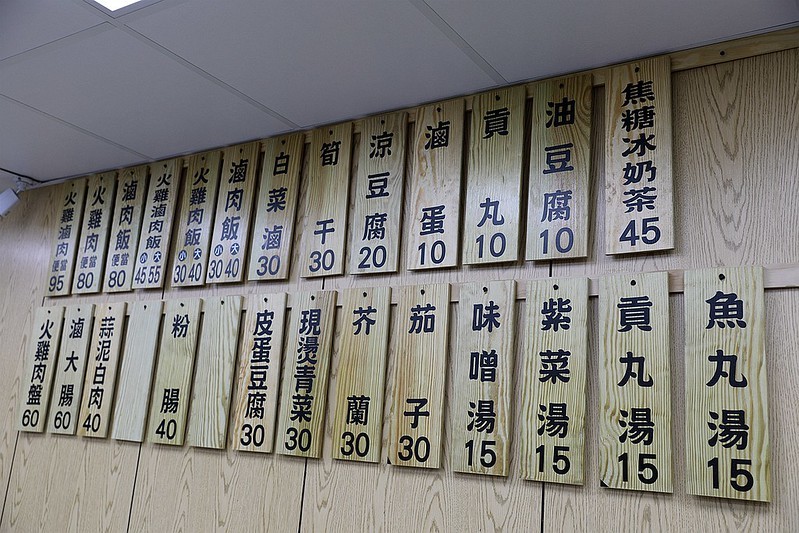 火雞滷肉便當95
火雞肉便當80
滷肉飯便當80
火雞滷肉飯小45大55
火雞肉飯小30大40
滷肉飯小30大40
白菜滷30
筍干30
涼豆腐20
滷蛋10
貢丸10
油豆腐10
焦糖冰奶茶45
火雞肉盤60
滷大腸60
蒜泥白肉40
粉腸40
皮蛋豆腐30
現燙青菜30
芥蘭30
茄子30
味噌湯15
紫菜湯15
貢丸湯15
魚丸湯15